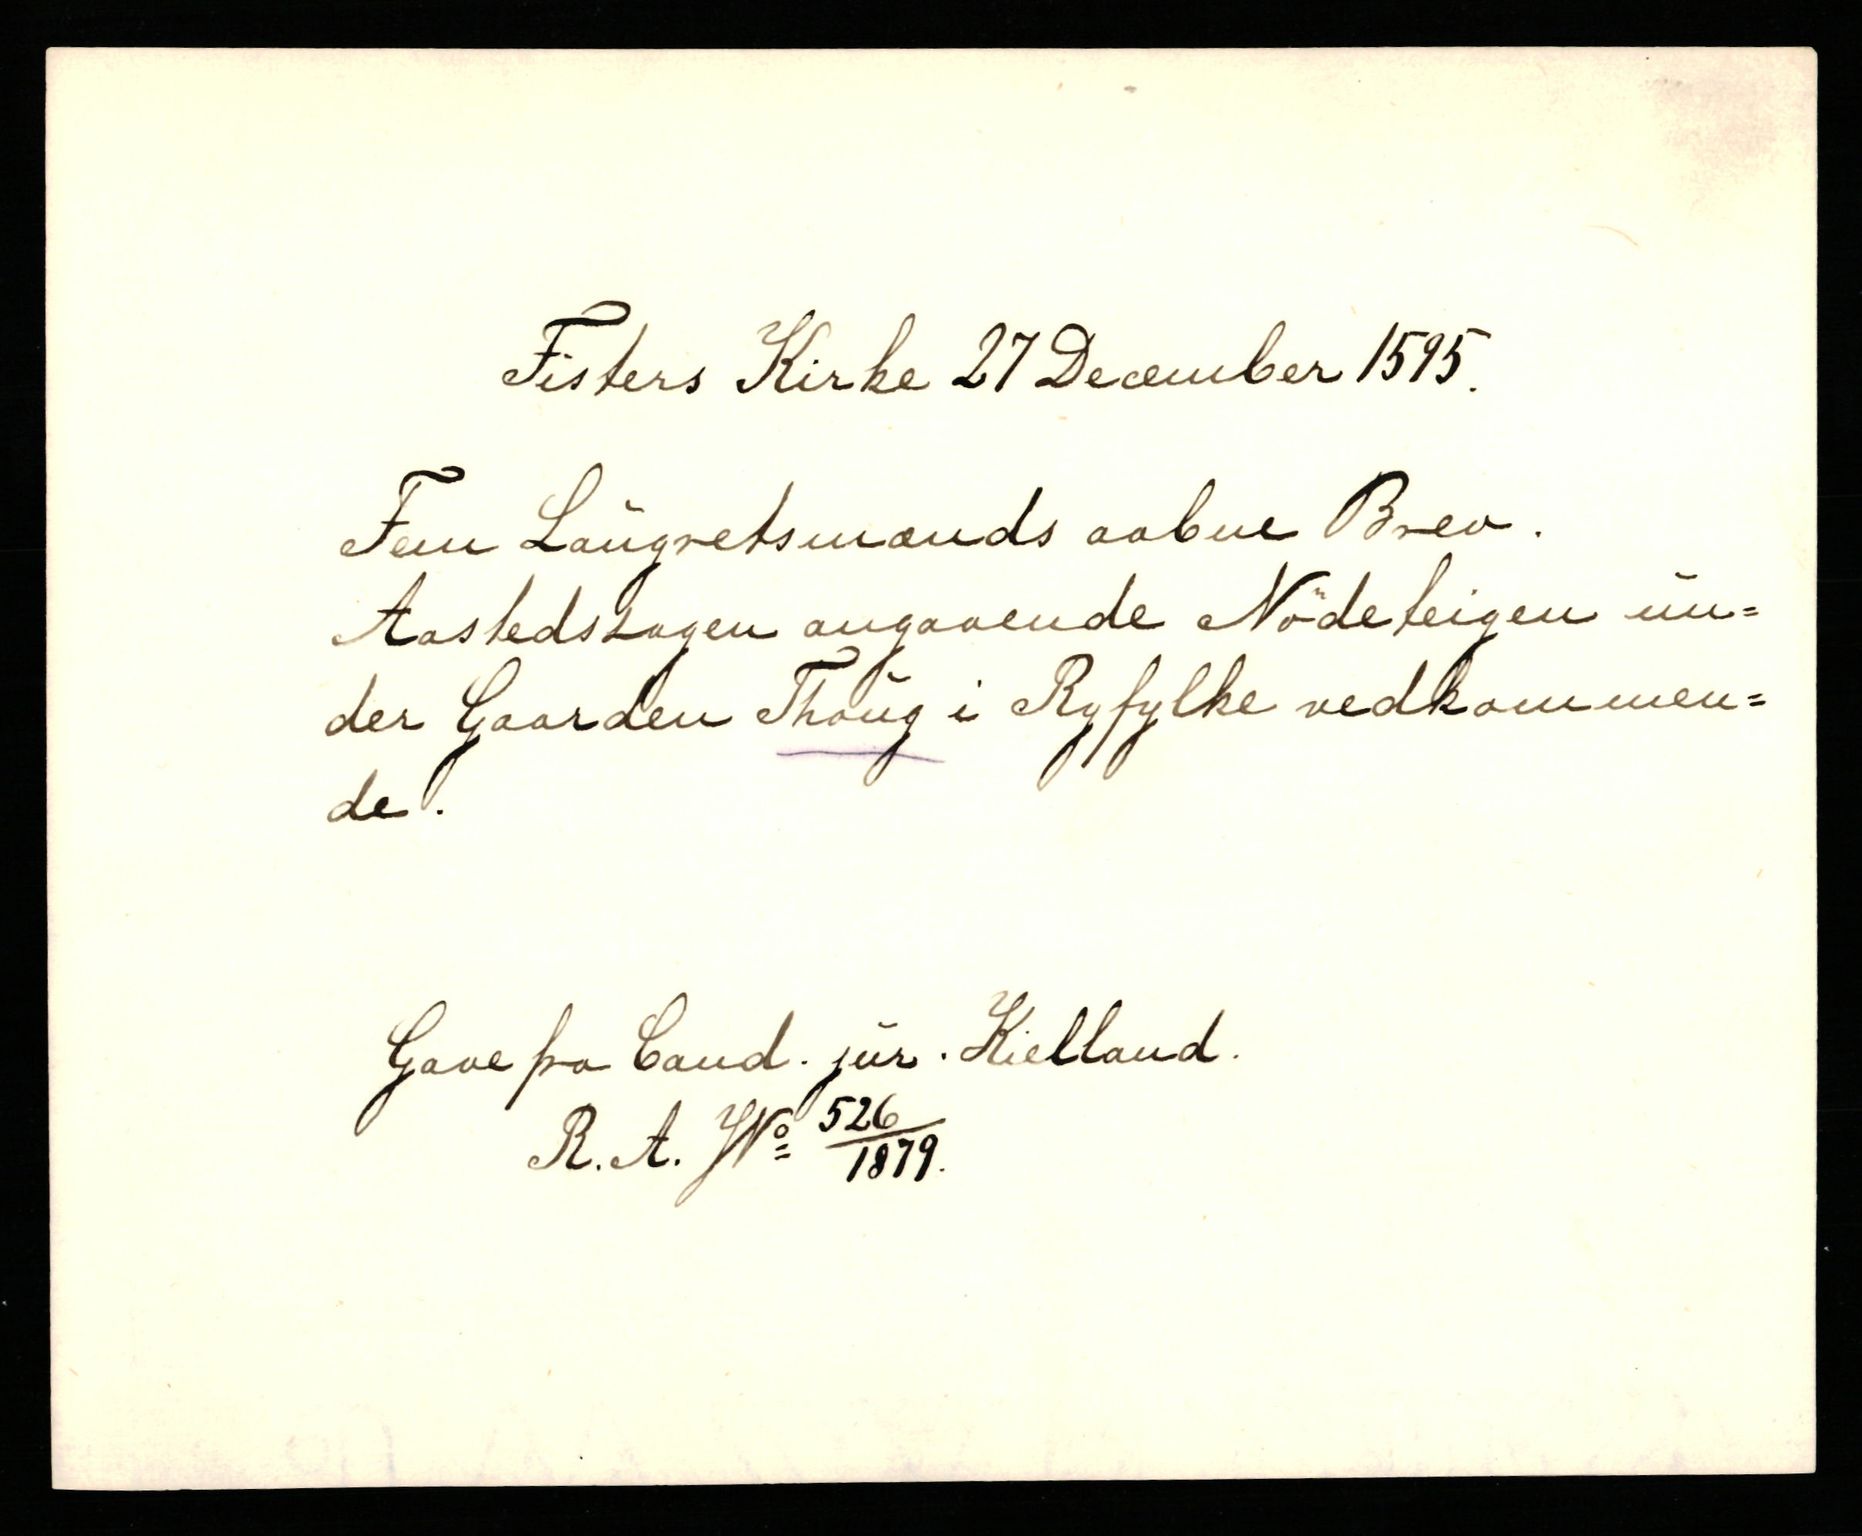 Fisters Kirke 27 December 1595.
Fem Laugretsmænds aabne Brev.
Aastedssagen angaaende Nödeteigen un=
der Gaarden Thoug i Ryfylke vedkommen=
de.
Gave fra Cand. jur. Kielland.
R. A. J No 526/1879.